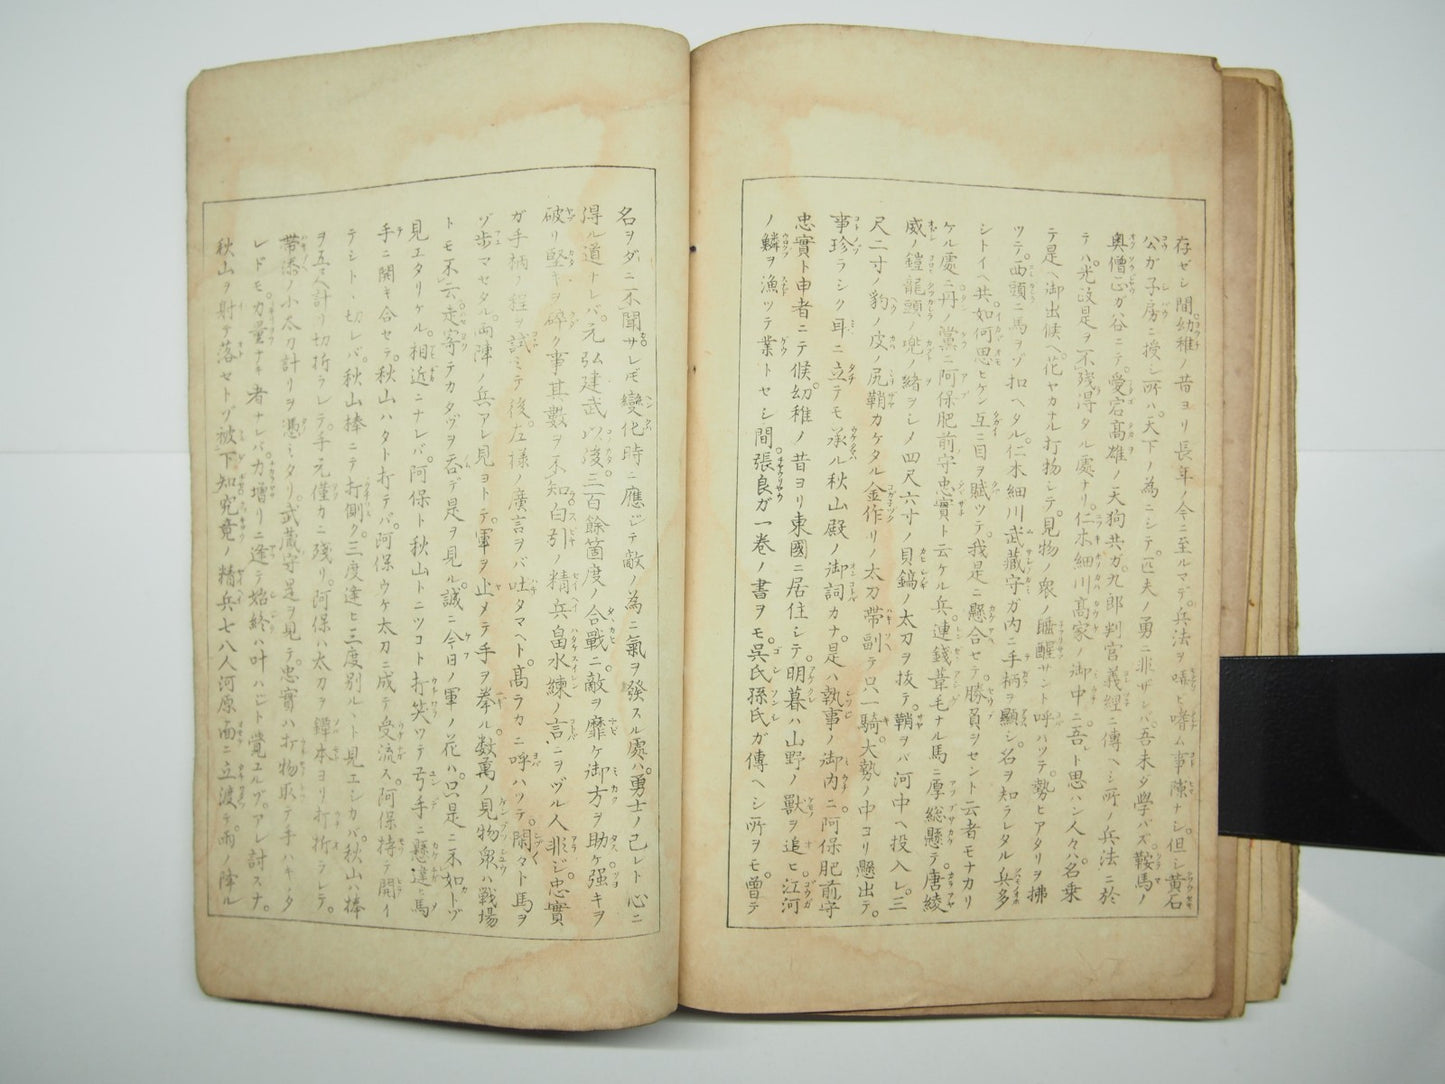 存ゼシ間幼稚ノ昔ヨリ長年ノ今ニ至ルマデ。兵法ヲ嗜ム事隙ナシ。但シ黄石
公ガ子房ニ授シ所ハ。天下ノ為ニシテ。匹夫ノ勇ニ非ザレバ。吾未タ學バズ。鞍馬ノ
奥僧正ガ谷ニテ。愛宕高雄ノ天狗共ガ。九郎判官義經ニ傳ヘシ所ノ兵法ニ於
テハ。光政是ヲ不殘得タル處ナリ。仁木細川高家ノ御中ニ吾レト思ハン人々ハ。名乗
テ是ヘ御出候ヘ。花ヤカナル打物シテ。見物ノ衆ノ睡醒サント呼ハツテ。勢ヒアタリヲ拂
ツテ。西頭ニ馬ヲゾ扣ヘタル。仁木細川武藏守ガ内ニ手柄ヲ顯シ。名ヲ知ラレタル兵多
シトイヘ共。如何思ヒケン。互ニ目ヲ賦ツテ。我是ニ懸合セテ。勝負ヲセント云者モナカリ
ケル處ニ。丹ノ黨ニ阿保肥前守忠實ト云ケル兵。連錢葦毛ナル馬ニ厚総懸テ。唐綾
威ノ鎧龍頭ノ兜ノ緒ヲシメ四尺六寸ノ貝鎬ノ太刀ヲ抜テ。鞘ヲバ河中ヘ投入レ。三
尺二寸ノ豹ノ皮ノ尻鞘カケタル金作リノ太刀帯副テ只一騎。大勢ノ中ヨリ懸出テ。
事珍ラシク耳ニ立テモ承ル秋山殿ノ御詞カナ。是ハ執事ノ御内ニ。阿保肥前守
忠實ト申者ニテ候。幼稚ノ昔ヨリ東國ニ居住シテ。明暮ハ山野ノ獸ヲ追ヒ。江河
ノ鱗ヲ漁ツテ業トセシ間。張良ガ一巻ノ書ヲモ。呉氏孫氏ガ傳ヘシ所ヲモ。曽テ
名ヲダニ不聞。サレ𪜈變化時ニ應ジテ敵ノ為ニ氣ヲ發スル處ハ。勇士ノ己レト心ニ
得ル道ナレバ。元弘建武以後。三百餘箇度ノ合戰ニ。敵ヲ靡ケ御方ヲ助ケ。强キヲ
破リ堅キヲ碎ク事其數ヲ不知。白引ノ精兵畠水練ノ言ニヲヅル人非ジ。忠實
ガ手柄ノ程ヲ試ミテ後。左様ノ廣言ヲバ吐タマヘト。髙ラカニ呼ハツテ。閑々ト馬ヲ
ゾ歩マセタル。両陣ノ兵アレ見ヨトテ。軍ヲ止メテ手ヲ拳ル。數萬ノ見物衆ハ戰場
トモ不云。走寄テカタヅヲ呑デ是ヲ見ル。誠ニ今日ノ軍ノ花ハ。只是ニ不如トゾ
見エタリケル。相近ニナレバ。阿保ト秋山トニツコト打笑ツテ弓手ニ懸違馬
手ニ開キ合セテ。秋山ハタト打テバ。阿保ウケ太刀ニ成テ受流ス。阿保持テ開イ
テシトヽ切レバ。秋山棒ニテ打側ク。三度逢ヒ三度別ルヽト見エシカバ。秋山ハ棒
ヲ五尺計リ切折ラレテ。手元僅カニ殘リ。阿保ハ太刀ヲ鐔本ヨリ打折ラレテ。
帯添ノ小太刀計リヲ憑ミタリ。武蔵守是ヲ見テ。忠實ハ打物取テ手ハキヽタ
レドモ。力量ナキ者ナレバ。力増リニ逢テ始終ハ叶ハジト覺エルゾ。アレ討スナ。
秋山ヲ射テ落セトゾ被下知。究竟ノ精兵七八人河原面ニ立渡テ。雨ノ降ル